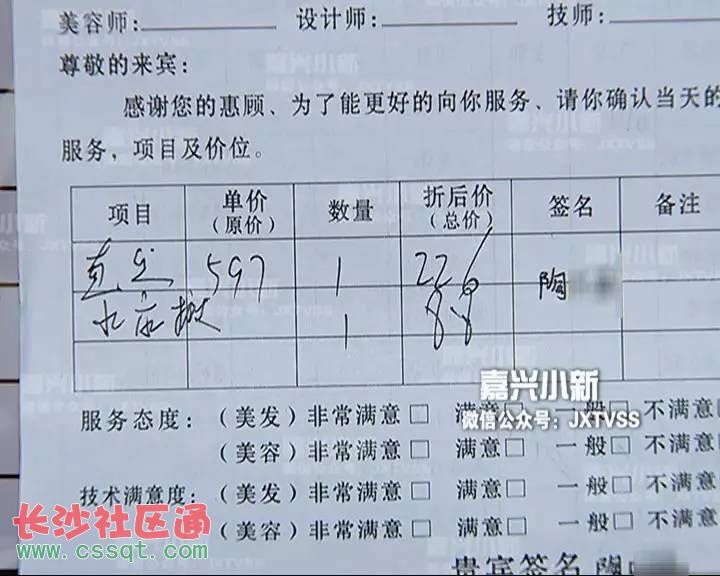 美容师: 设计师: 技师:
尊敬的来宾:
感谢您的惠顾、为了能更好的向你服务、请你确认当天的
服务,项目及价位。
项目 单价(原价) 数量 折后价(总价) 签名 备注
直发 597 1 226 陶
1 88
嘉兴小新
微信公众号:JXTVSS
服务态度:(美发)非常满意□ 满意 一般□ 不满意□
(美容)非常满意□ 满意□ 一般□ 不满意□
技术满意度:(美发)非常满意□ 满意□ 一般□ 不满意□
(美容)非常满意□ 满意□ 一般□ 不满意□
贵宾签名 陶
长沙社区通
www.cssqt.com